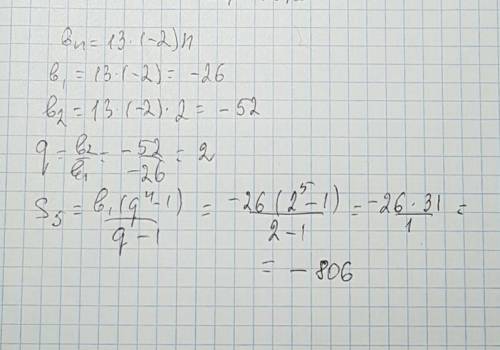 вn = 13 · (-2)n
в₁ = 13 · (-2) = -26
в₂ = 13 · (-2) · 2 = -52
q = в₂/в₁ = -52/-26 = 2
S₅ = в₁(qⁿ-1)/q-1 = -26(2⁵-1)/2-1 = -26·31/1 =
= -806